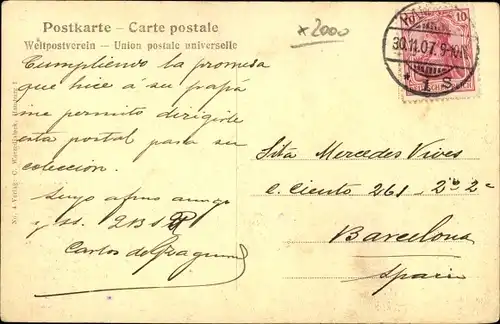 Postkarte – Carte postale
Weltpostverein – Union postale universelle
x 2000
30.11.07. 9-10N
* 1 S
10
Cumpliendo la promesa
que hice á su papá
me permito dirigirle
esta postal para su
coleccion.
Suyo afmo amigo
y ss. 2BS
Carlos de
Srta Mercedes Vives
c. Ciento 261 - 2º 2ª
Barcelona
Spain
No. 4 Verlag: C. Hamburg 1